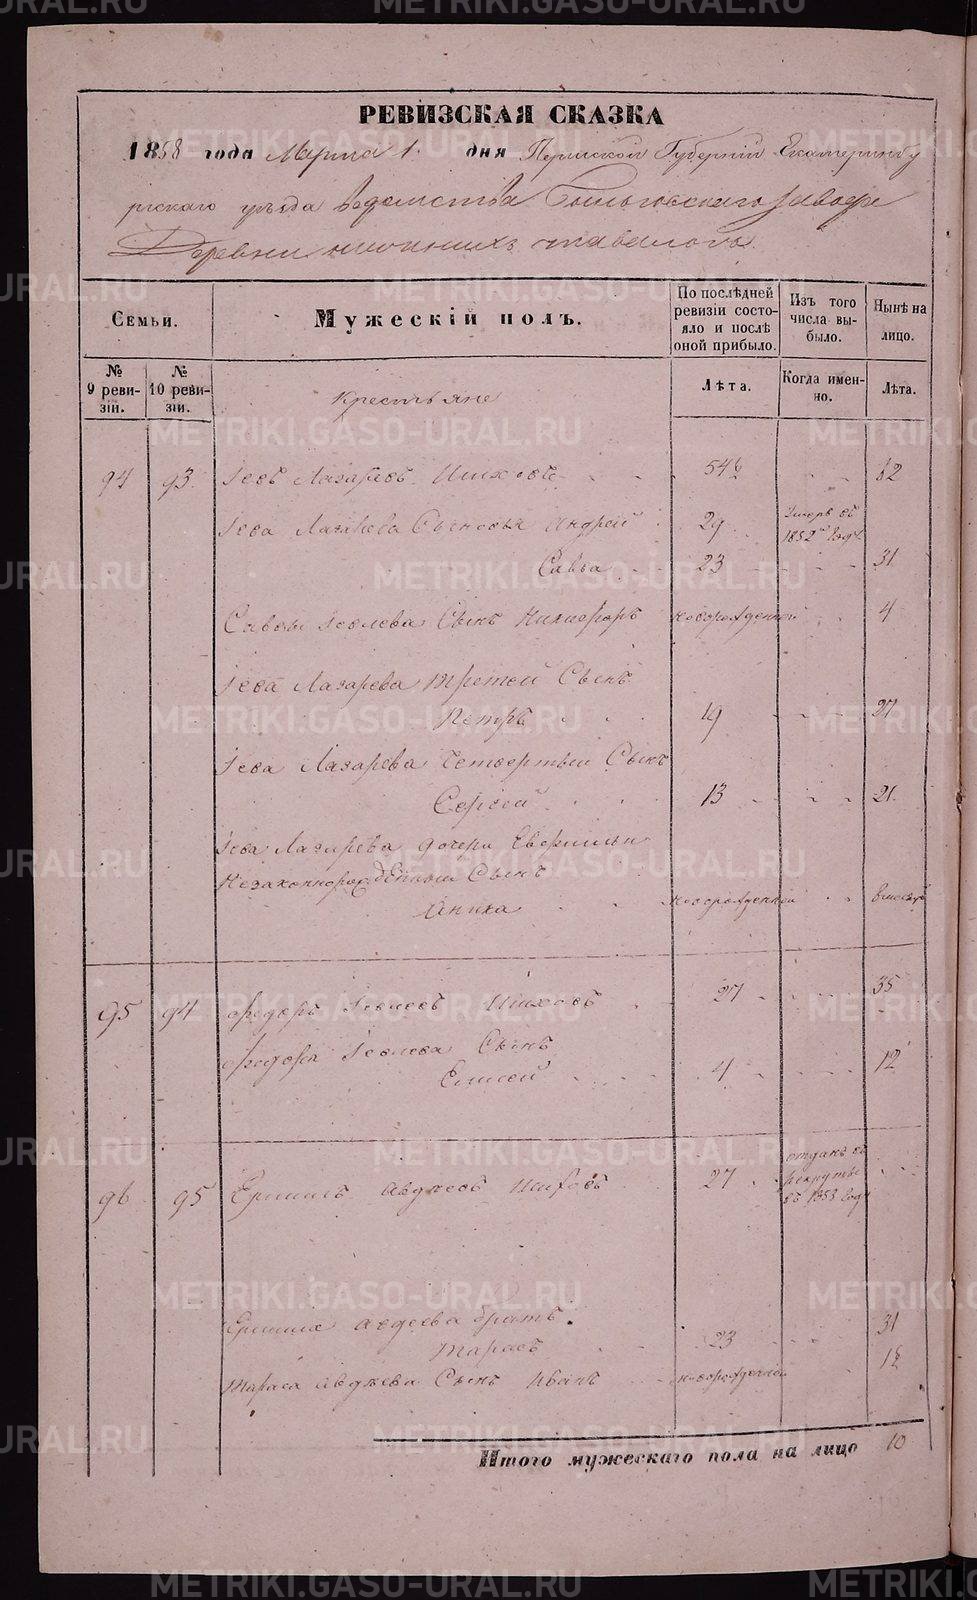 РЕВИЗСКАЯ СКАЗКА
1858 года Марта 1. дня Пермской Губернии Екатеринбу
ргскаго уезда ведомства завода
Деревни
Семьи.
Мужескій полъ.
По послѣдней ревизіи состояло и послѣ оной прибыло.
Изъ того числа выбыло.
Нынѣ на лицо.
№ 9 ревизіи.
№ 10 ревизіи.
Лѣта.
Когда именно.
Лѣта.
Крестьяне
94 93 Іовъ Лазаревъ
Іова Лазарева Сыновья Андрей 29 Умеръ въ 1852 году
Савва 23 31
Саввы Іовлева Сынъ Никифоръ новорожденной 4
Іова Лазарева третей Сынъ
Петръ 19 27
Іова Лазарева Четвертый Сынъ
Сергей 13 21
Іова Лазарева дочери
Незаконнорожденный Сынъ
Аника новорожденной
95 94 Федоръ Іовлевъ 27 35
Федора Іовлева Сынъ
Елисей 4 12
96 95 Ермилъ Авдеевъ 27 отданъ въ рекруты въ 1853 году
Авдеева братъ
Тарасъ 23 31
Тараса Авдеева Сынъ Иванъ новорожденной
Итого мужескаго пола на лицо 10
METRIKI.GASO-URAL.RU